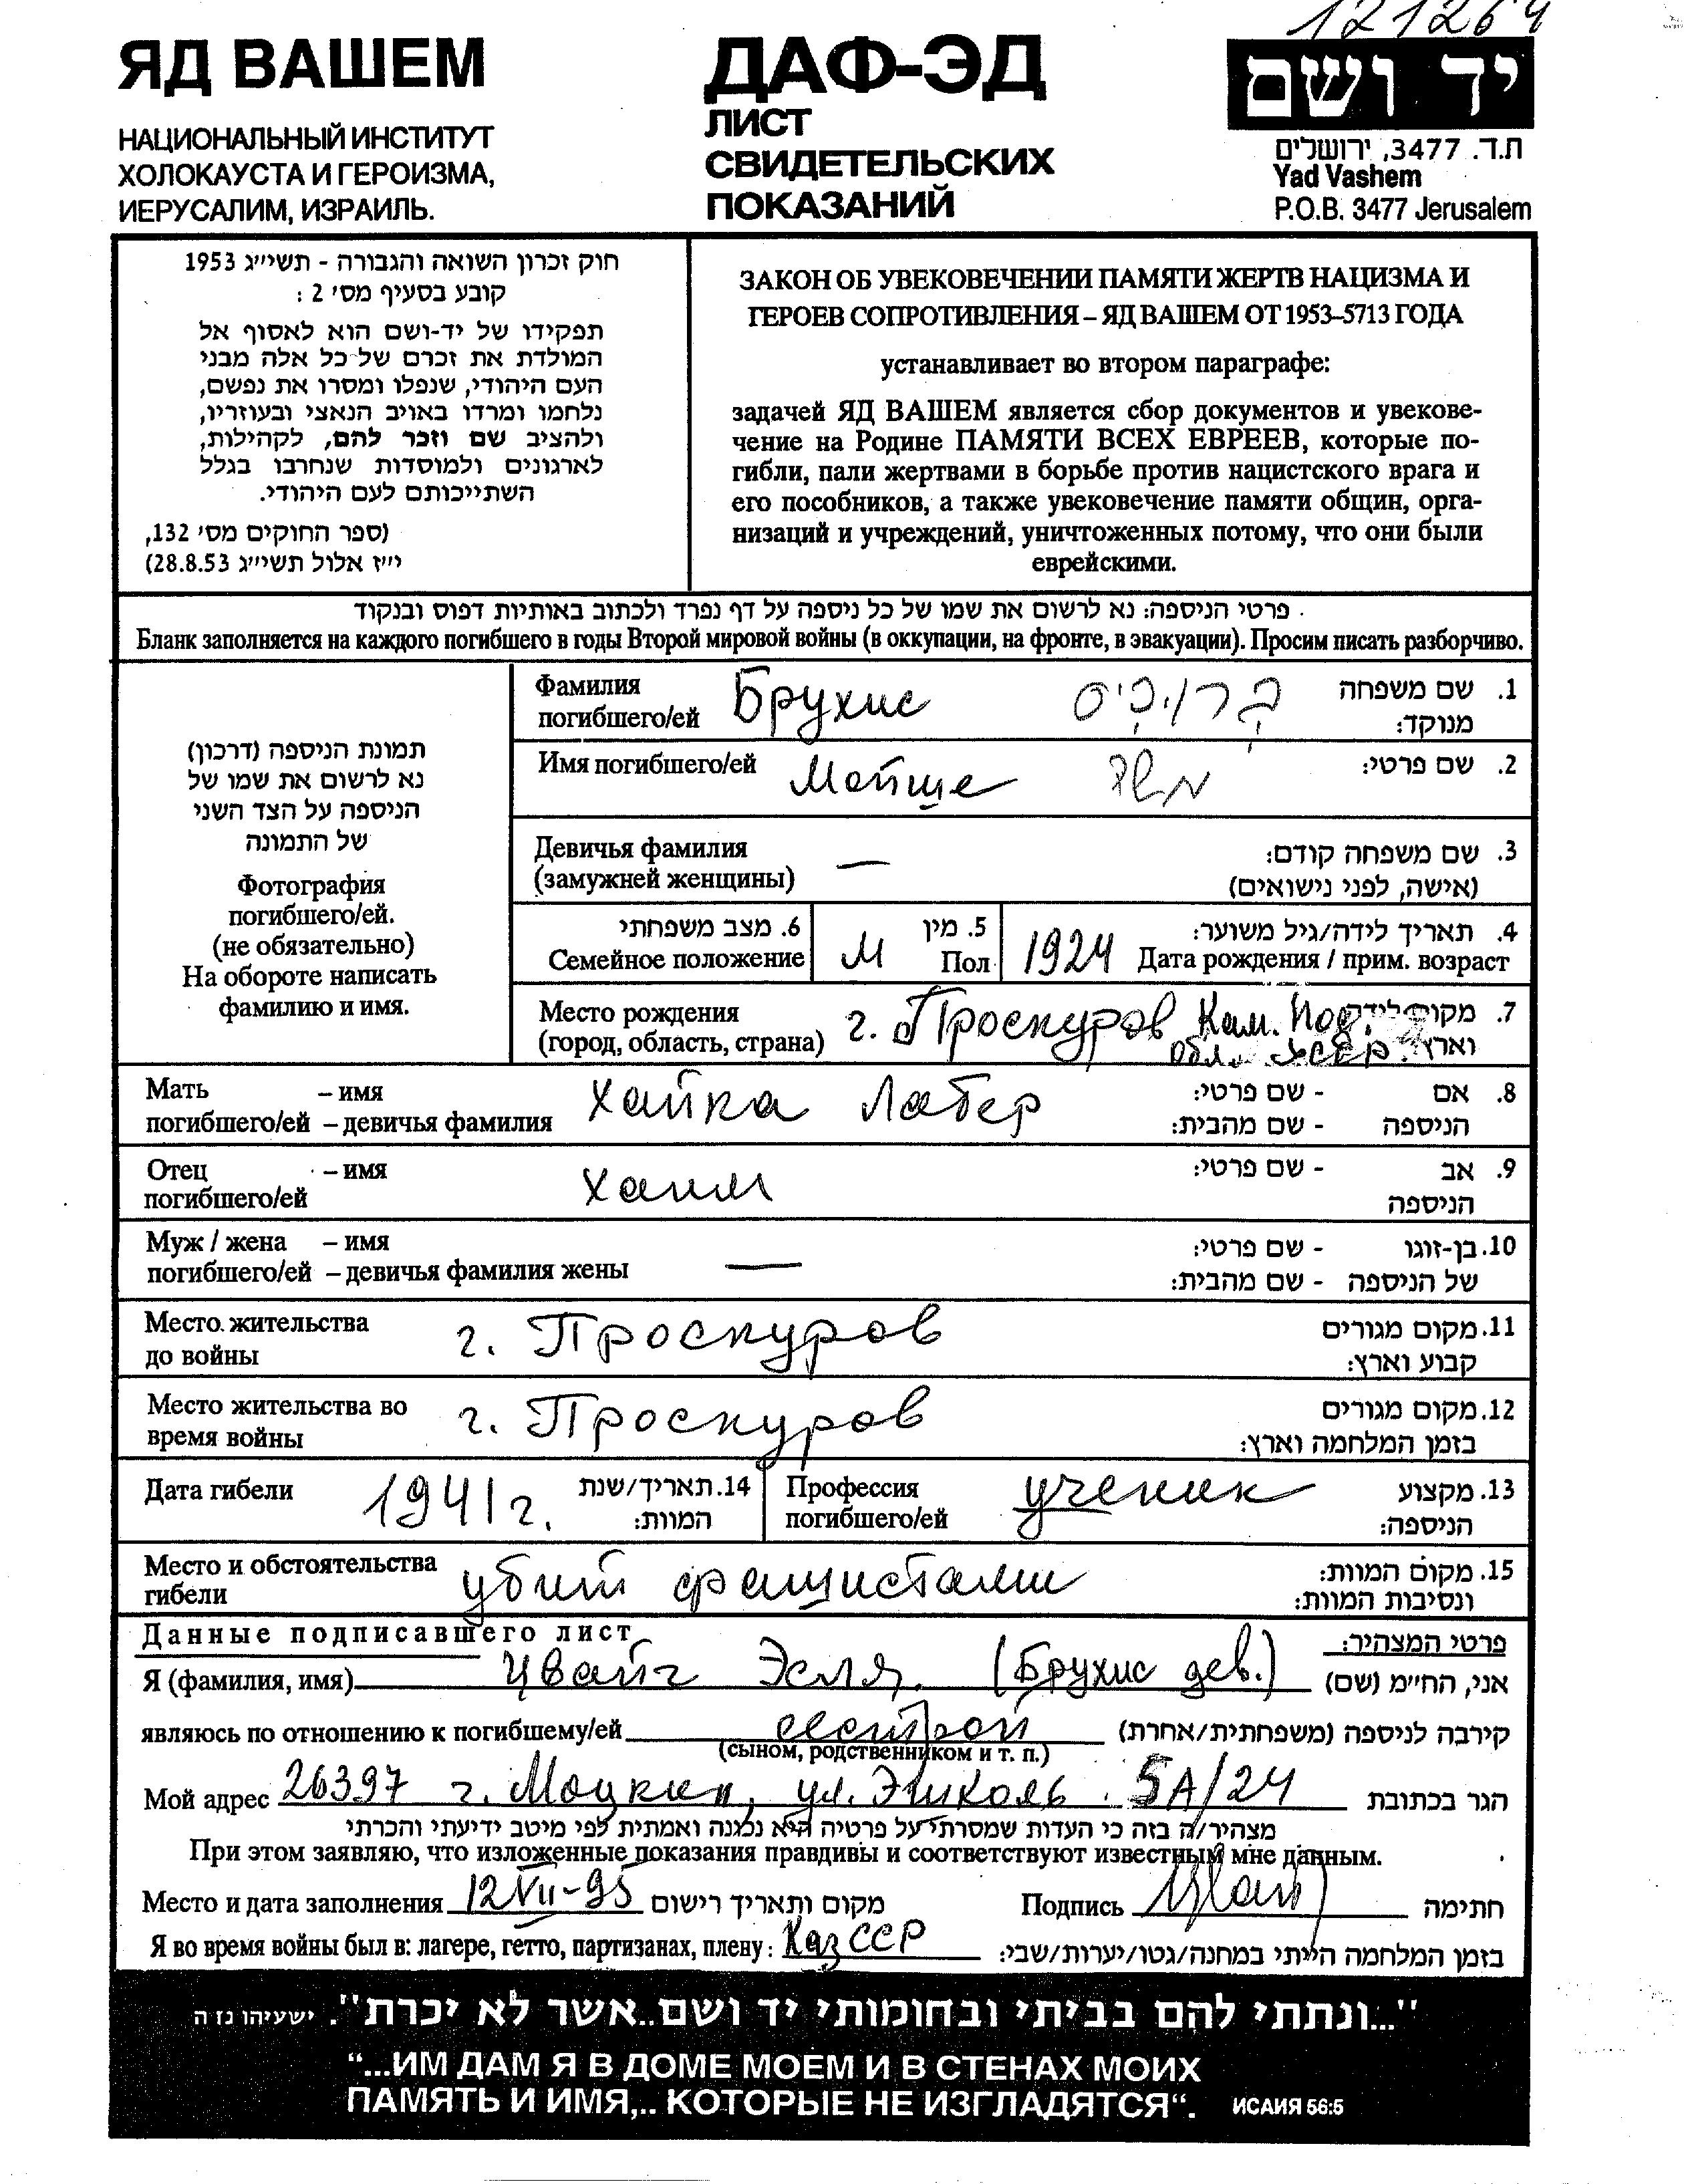 121264
ЯД ВАШЕМ
НАЦИОНАЛЬНЫЙ ИНСТИТУТ
ХОЛОКАУСТА И ГЕРОИЗМА,
ИЕРУСАЛИМ, ИЗРАИЛЬ.
ДАФ-ЭД
ЛИСТ
СВИДЕТЕЛЬСКИХ
ПОКАЗАНИЙ
יד ושם
ת.ד. 3477, ירושלים
Yad Vashem
P.O.B. 3477 Jerusalem
חוק זכרון השואה והגבורה - תשי״ג 1953
קובע בסעיף מס׳ 2 :
תפקידו של יד-ושם הוא לאסוף אל
המולדת את זכרם של כל אלה מבני
העם היהודי, שנפלו ומסרו את נפשם,
נלחמו ומרדו באויב הנאצי ובעוזריו,
ולהציב שם וזכר להם, לקהילות,
לארגונים ולמוסדות שנחרבו בגלל
השתייכותם לעם היהודי.
(ספר החוקים מס׳ 132,
י״ז אלול תשי״ג 28.8.53)
ЗАКОН ОБ УВЕКОВЕЧЕНИИ ПАМЯТИ ЖЕРТВ НАЦИЗМА И
ГЕРОЕВ СОПРОТИВЛЕНИЯ – ЯД ВАШЕМ ОТ 1953–5713 ГОДА
устанавливает во втором параграфе:
задачей ЯД ВАШЕМ является сбор документов и увекове-
чение на Родине ПАМЯТИ ВСЕХ ЕВРЕЕВ, которые по-
гибли, пали жертвами в борьбе против нацистского врага и
его пособников, а также увековечение памяти общин, орга-
низаций и учреждений, уничтоженных потому, что они были
еврейскими.
פרטי הניספה: נא לרשום את שמו של כל ניספה על דף נפרד ולכתוב באותיות דפוס ובנקוד
Бланк заполняется на каждого погибшего в годы Второй мировой войны (в оккупации, на фронте, в эвакуации). Просим писать разборчиво.
תמונת הניספה (דרכון)
נא לרשום את שמו של
הניספה על הצד השני
של התמונה
Фотография
погибшего/ей.
(не обязательно)
На обороте написать
фамилию и имя.
Фамилия погибшего/ей Брухис ברוכיס 1. שם משפחה מנוקד:
Имя погибшего/ей Мойше משה 2. שם פרטי:
Девичья фамилия — 3. שם משפחה קודם:
(замужней женщины) (אישה, לפני נישואים)
6. מצב משפחתי 5. מין 4. תאריך לידה/גיל משוער:
Семейное положение М Пол 1924 Дата рождения / прим. возраст
Место рождения г. Проскуров Кам. Под. 7. מקום לידה
(город, область, страна) обл. УССР. וארץ
Мать – имя Хайка Лабер 8. אם - שם פרטי:
погибшего/ей – девичья фамилия הניספה - שם מהבית:
Отец – имя Хаим 9. אב - שם פרטי:
погибшего/ей הניספה
Муж / жена – имя — 10. בן-זוגו - שם פרטי:
погибшего/ей – девичья фамилия жены של הניספה - שם מהבית:
Место жительства г. Проскуров 11. מקום מגורים
до войны קבוע וארץ:
Место жительства во г. Проскуров 12. מקום מגורים
время войны בזמן המלחמה וארץ:
Дата гибели 1941 г. 14. תאריך/שנת המוות:
Профессия погибшего/ей ученик 13. מקצוע הניספה:
Место и обстоятельства убит фашистами 15. מקום המוות:
гибели ונסיבות המוות:
Данные подписавшего лист פרטי המצהיר:
Я (фамилия, имя) Цвайг Эсля. (Брухис дев.) אני, הח״מ (שם)
являюсь по отношению к погибшему/ей сестрой קירבה לניספה (משפחתית/אחרת)
(сыном, родственником и т. п.)
Мой адрес 26397 г. Моцкин, ул. Эшколь 5А/24 הגר בכתובת
מצהיר/ה בזה כי העדות שמסרתי על פרטיה היא נכונה ואמתית לפי מיטב ידיעתי והכרתי
При этом заявляю, что изложенные показания правдивы и соответствуют известным мне данным.
Место и дата заполнения 12 VII-95 מקום ותאריך רישום Подпись חתימה
Я во время войны был в: лагере, гетто, партизанах, плену: Каз ССР בזמן המלחמה הייתי במחנה/גטו/יערות/שבי:
"...ונתתי להם בביתי ובחומותי יד ושם..אשר לא יכרת". ישעיהו נז ה
“...ИМ ДАМ Я В ДОМЕ МОЕМ И В СТЕНАХ МОИХ
ПАМЯТЬ И ИМЯ,.. КОТОРЫЕ НЕ ИЗГЛАДЯТСЯ“. ИСАИЯ 56:5